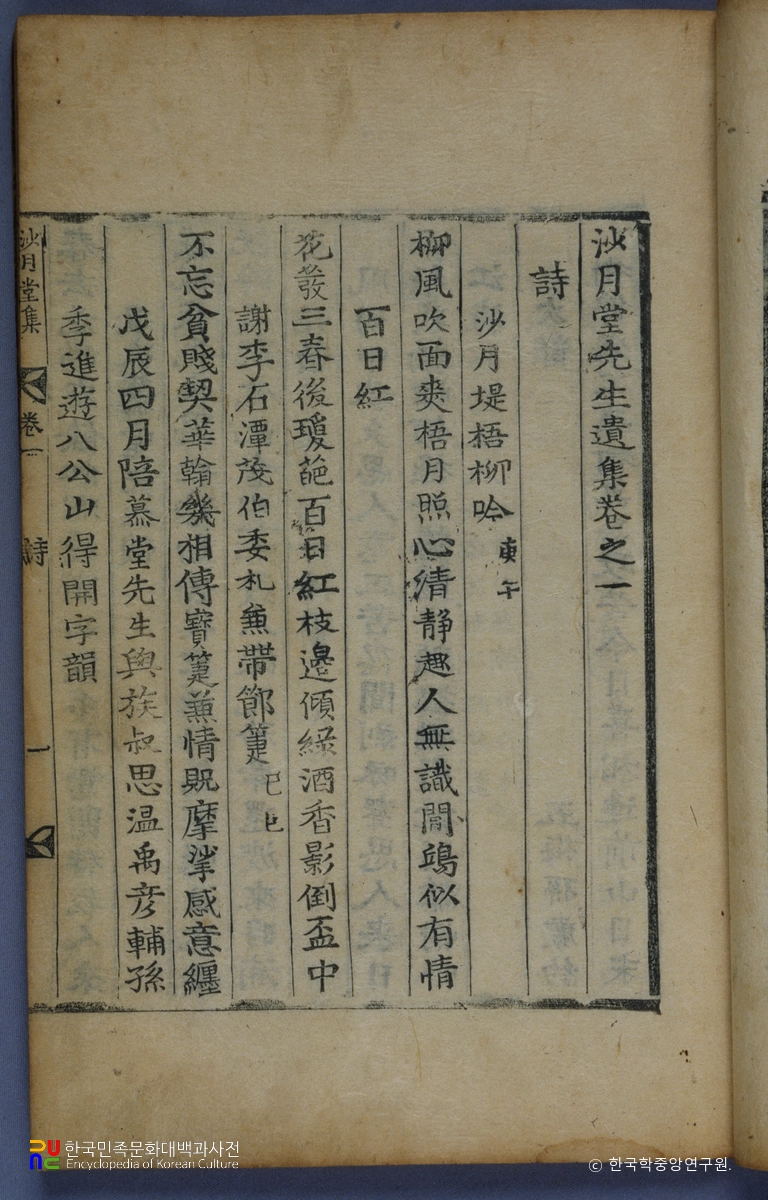 沙月堂先生遺集卷之一
詩
沙月堤梧柳吟 庚午
柳風吹面爽梧月照心淸静趣人無識閒鴎似有情
百日紅
花發三春後瓊葩百日紅枝邊傾綠酒香影倒盃中
謝李石潭茂伯委札兼帶節箑 己巳
不忘貧賤契華翰幾相傳寶箑兼情貺摩挲感意纏
戊辰四月陪慕堂先生與族叔思温禹彦輔孫
季進遊八公山得開字韻
沙月堂集
卷一
詩
一
한국민족문화대백과사전
Encyclopedia of Korean Culture
© 한국학중앙연구원.